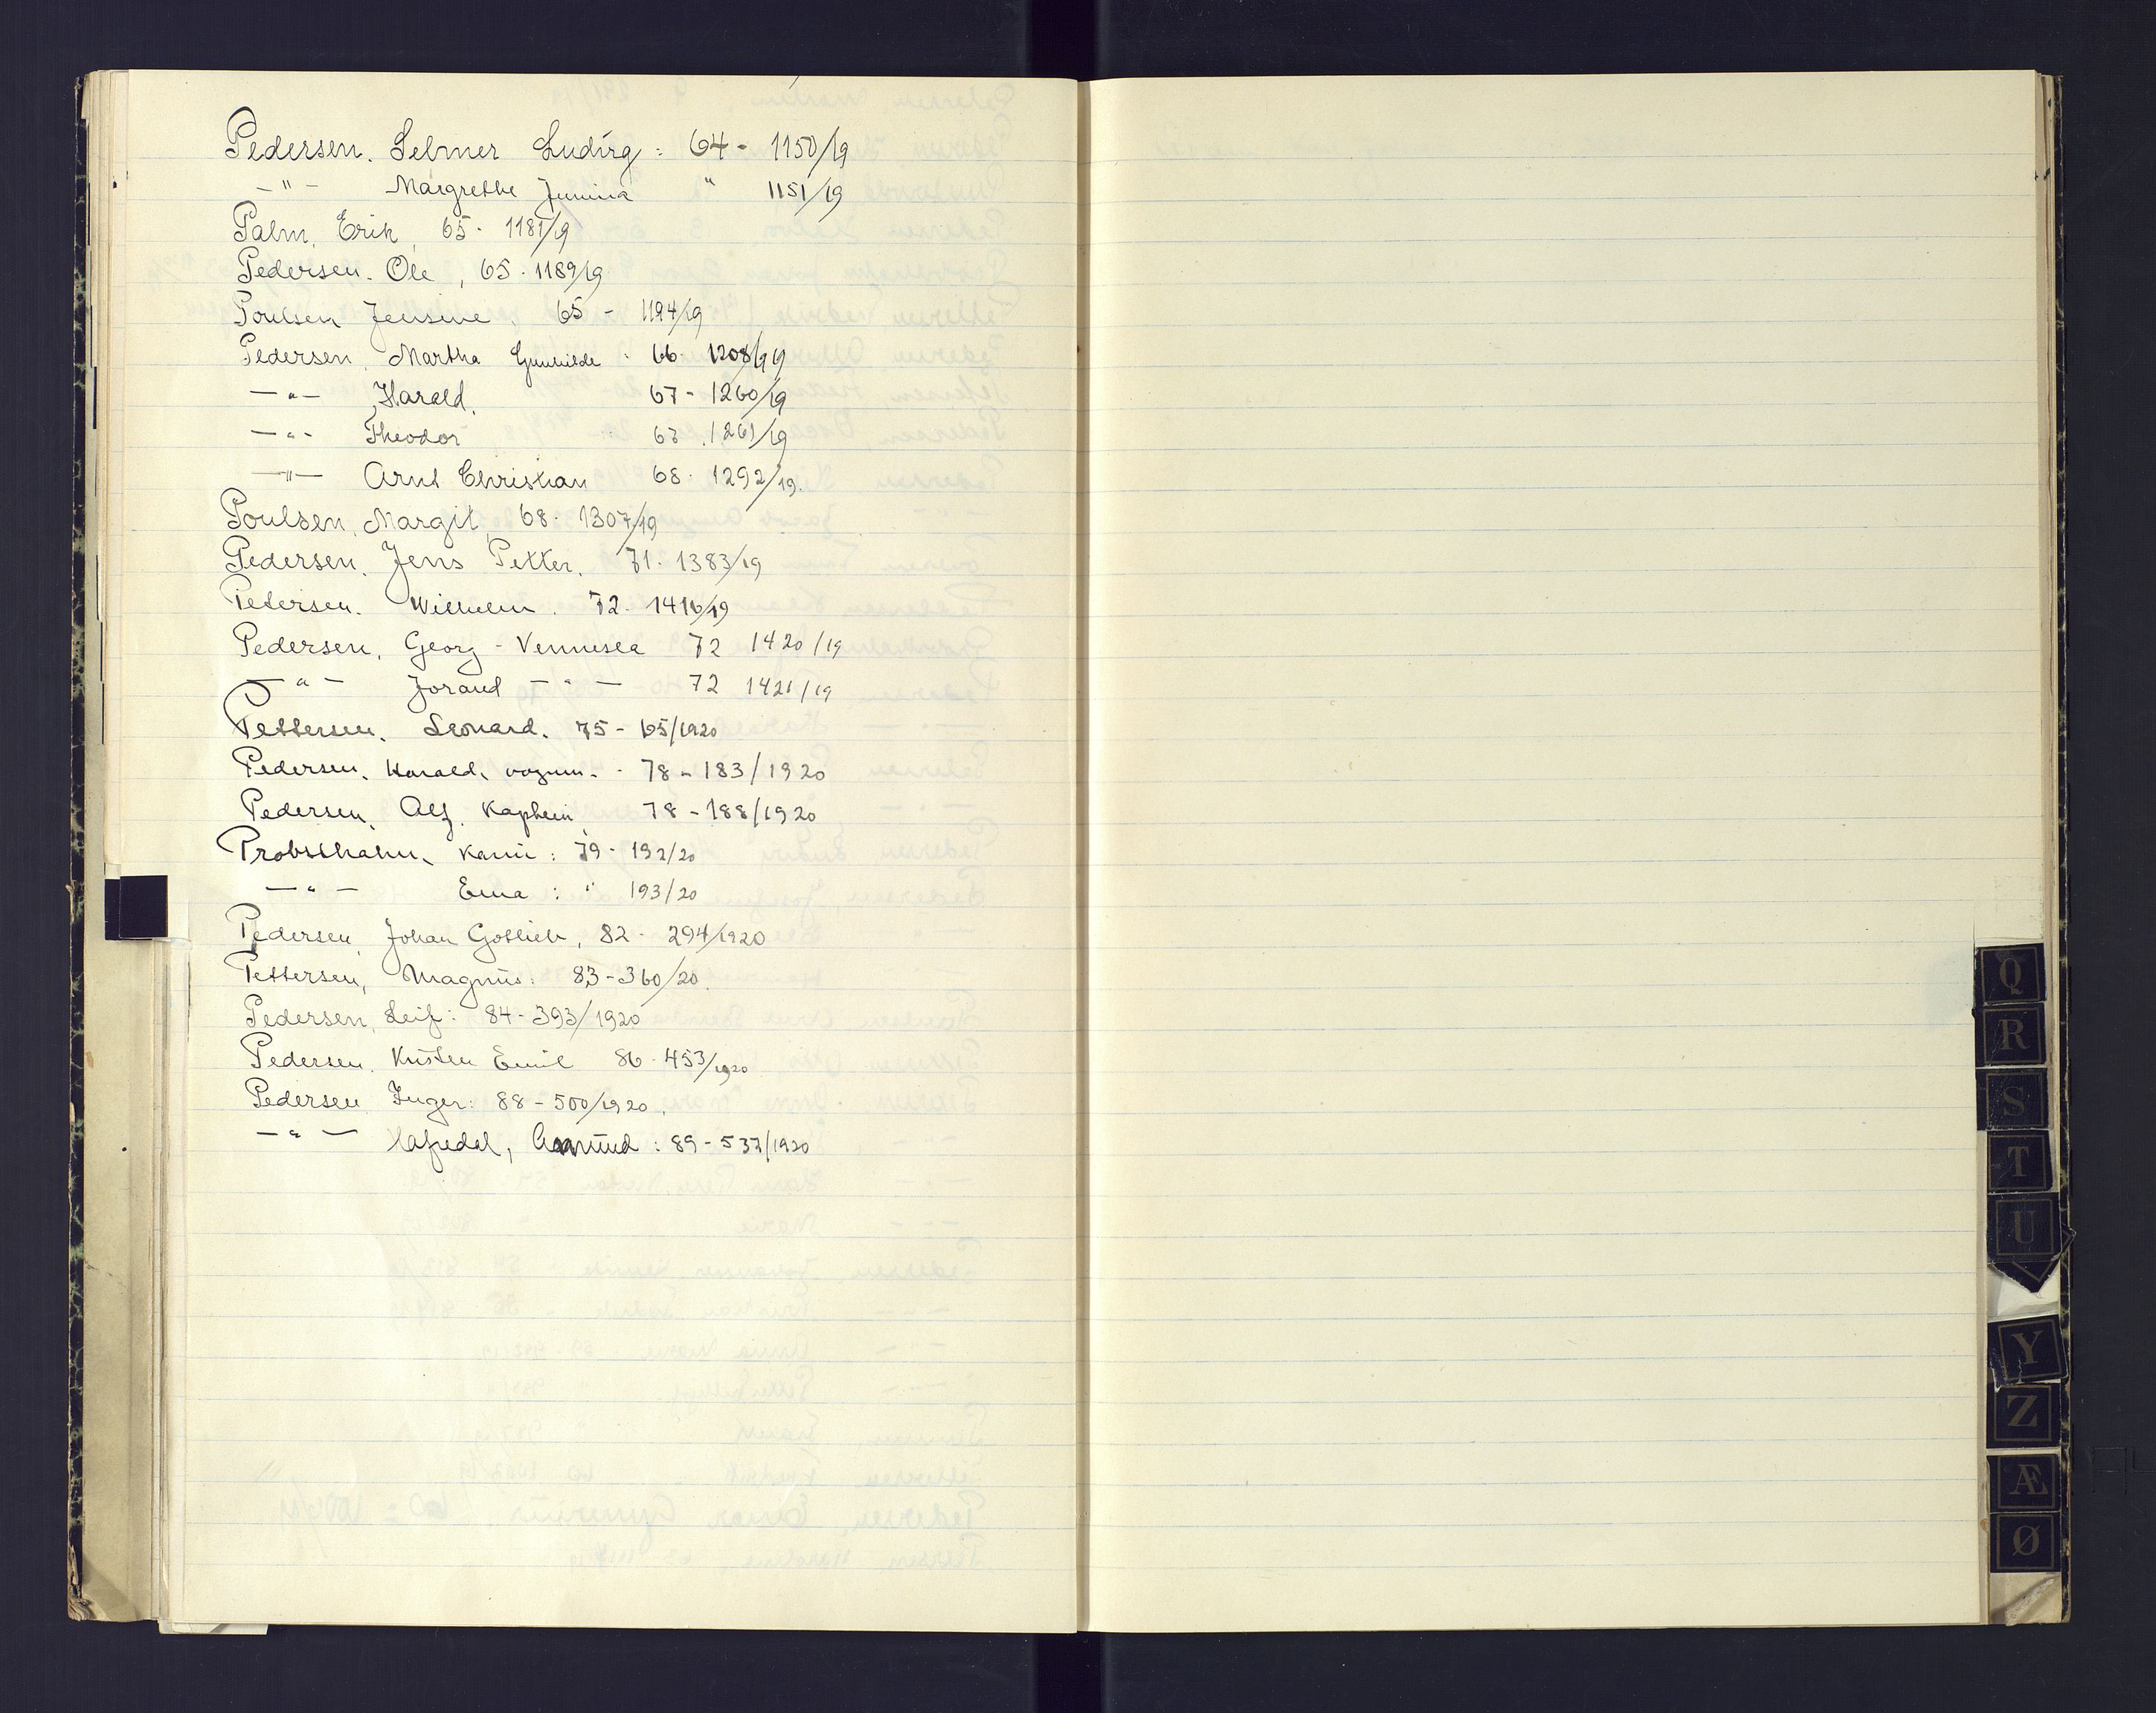 Pedersen. Selmer Ludvig: 64 - 1150/19
- " - Margrethe Junina " 1151/19
Palm, Erik, 65 - 1181/19
Pedersen. Ole, 65 - 1189/19
Poulsen Jensine, 65 - 1194/19
Pedersen, Martha Gunhilde : 66. 1208/19
- " - Harald, 67 - 1260/19
- " - Theodor 67 . 1261/19
- " - Arnt Christian 68 - 1292/19.
Poulsen, Margit, 68 - 1307/19
Pedersen, Jens Petter, 71 - 1383/19
Pedersen. Wilhelm. 72 - 1416/19
Pedersen, Georg - Vennesla 72 1420/19
- " - Jorand - " - 72 1421/19
Pettersen, Leonard. 75 - 65/1920
Pedersen, Harald, vognm. - 78 - 183/1920
Pedersen, Alf. Kaptein, 78 - 188/1920
Probsthahn, Karin : 79 - 192/20
- " - Erna : " 193/20
Pedersen, Johan Gotlieb, 82 - 294/1920
Pettersen, Magnus: 83 - 360/20.
Pedersen, Leif: 84 - 393/1920
Pedersen, Kristen Emil 86 - 453/1920
Pedersen Inger: 88 - 500/1920.
- " - Hafredal, : 89 - 537/1920
Q
R
S
T
U
Y
Z
Æ
Ø